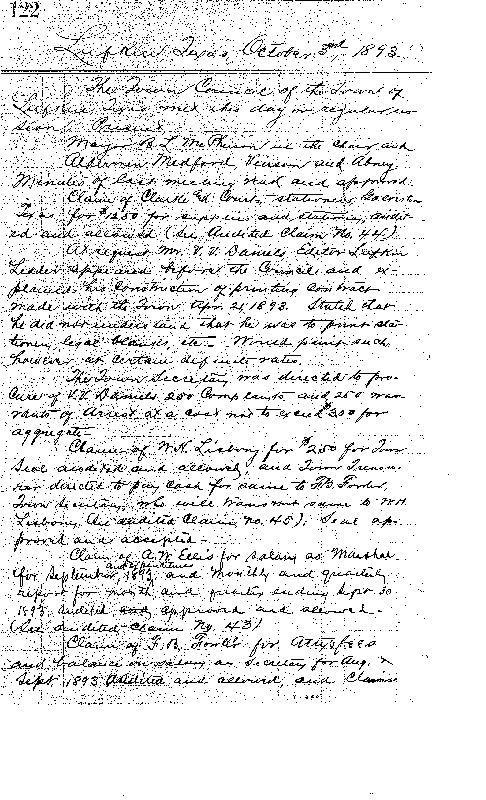 122
Lufkin Texas, October 3rd, 1893.
The Town Council of the Town of
Lufkin Texas met this day in regular ses-
sion. Present
Mayor B. L. McPherson in the chair and
Aldermen Medford, Vinson and Abney
Minutes of last meeting read and approved.
Claim of Clarke & Courts stationers Galveston
Texas for $ for supplies and stationery audit-
ed and allowed (See Audited Claim No. 44).
At request Mr. V. V. Daniels Editor Lufkin
Leader appeared before the Council and ex-
plained his construction of printing contract
made with the Town Apr. 21 1893. Stated that
he did not understand that he was to print sta-
tionery, legal blanks, etc. Would print such
however at certain definite rates.
The Town Secretary was directed to pro-
cure of V. V. Daniels 200 Complaints and 250 war-
rants of Arrest at a cost not to exceed $3.00 for
aggregate.
Claim of W. H. for $2.50 for Town
Seal audited and allowed, and Town Treasu-
rer directed to pay cash for same to Fowler,
Town Secretary, who will transmit same to W.H.
(See audited Claim No. 45). Seal ap-
proved and accepted.
Claim of A. W. Ellis for salary as Marshal
for September 1893 and expenditures and monthly and quarterly
report for month and quarter ending Sept 30
1893 audited and approved and allowed.
(See audited Claim No. 43)
Claim of Fowler for
and balance on salary as Secretary for Aug. &
Sept. 1893 Audited and allowed, and Claims